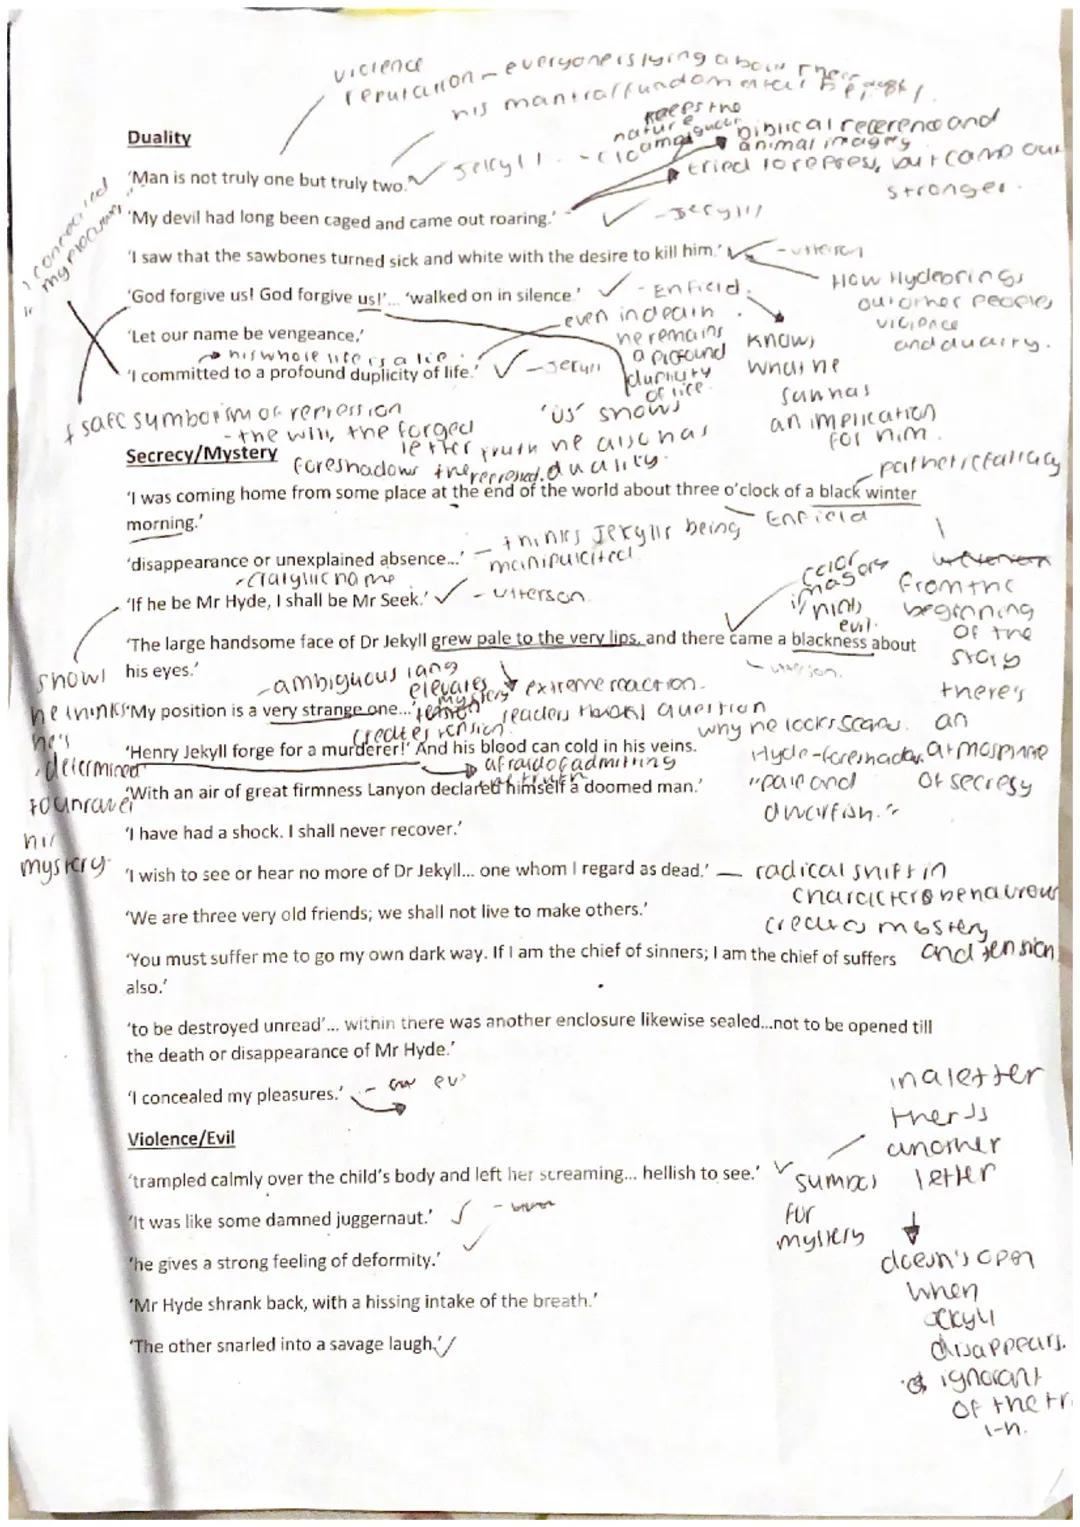 violence
reputation - everyone is lying about their
his mantra/fundamental
keeps the
nature
ambiguous
biblical reference and
animal imagery
tried to repress, but came out
stronger.
Duality
'Man is not truly one but truly two.' ✓ Jekyll
'My devil had long been caged and came out roaring.' ✓ - Jekyll
"I concealed
my pleasures"
'I saw that the sawbones turned sick and white with the desire to kill him.' ✓ - utterson
How Hyde brings
out other peoples
violence
and duality.
'God forgive us! God forgive us!'... 'walked on in silence.' ✓ - Enfield.
even in death
he remains
a profound
duplicity
of life.
knows
what he
says has
an implication
for him.
'Let our name be vengeance,'
his whole life is a lie.
'I committed to a profound duplicity of life.' ✓ - Jekyll
safe symbolism of repression
- the will, the forged
letter
foreshadows the truth
repressed.
'us' shows
he also has
duality.
Secrecy/Mystery
pathetic fallacy
'I was coming home from some place at the end of the world about three o'clock of a black winter
morning.'
- Enfield
'disappearance or unexplained absence...' - thinks Jekyll is being
manipulated.
'If he be Mr Hyde, I shall be Mr Seek.' ✓ - utterson.
shows
he thinks
he's
determined
to unravel
his
mystery.
color
imagery
hints
evil.
from the
beginning
of the
story
there's
an
atmosphere
of secresy
'The large handsome face of Dr Jekyll grew pale to the very lips, and there came a blackness about
his eyes.'
- utterson.
- ambiguous lang
elevates
mystery
extreme reaction.
'My position is a very strange one...'
creates tension.
readers question
why he looks scared.
'Henry Jekyll forge for a murderer!' And his blood can cold in his veins.
afraid of admitting
the truth
Hyde - foreshadow
"pale and
dwarfish."
'With an air of great firmness Lanyon declared himself a doomed man.'
'I have had a shock. I shall never recover.'
'I wish to see or hear no more of Dr Jekyll... one whom I regard as dead.' — radical shift in
characters behaviour
creates mystery
and tension
'We are three very old friends; we shall not live to make others.'
'You must suffer me to go my own dark way. If I am the chief of sinners; I am the chief of suffers
also.'
'to be destroyed unread'... within there was another enclosure likewise sealed...not to be opened till
the death or disappearance of Mr Hyde.'
'I concealed my pleasures.'
in a letter
there is
another
letter
doesn't open
when
Jekyll
disappears.
ignorant
of the
Violence/Evil
'trampled calmly over the child's body and left her screaming... hellish to see.' ✓
symbol
for
mystery
'It was like some damned juggernaut.' ✓
'he gives a strong feeling of deformity.' ✓
'Mr Hyde shrank back, with a hissing intake of the breath.'
'The other snarled into a savage laugh.' ✓